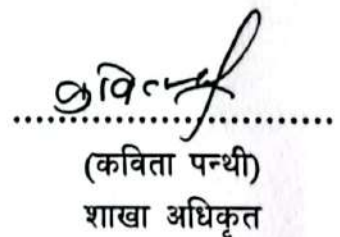 ..............................
(कविता पन्थी)
शाखा अधिकृत